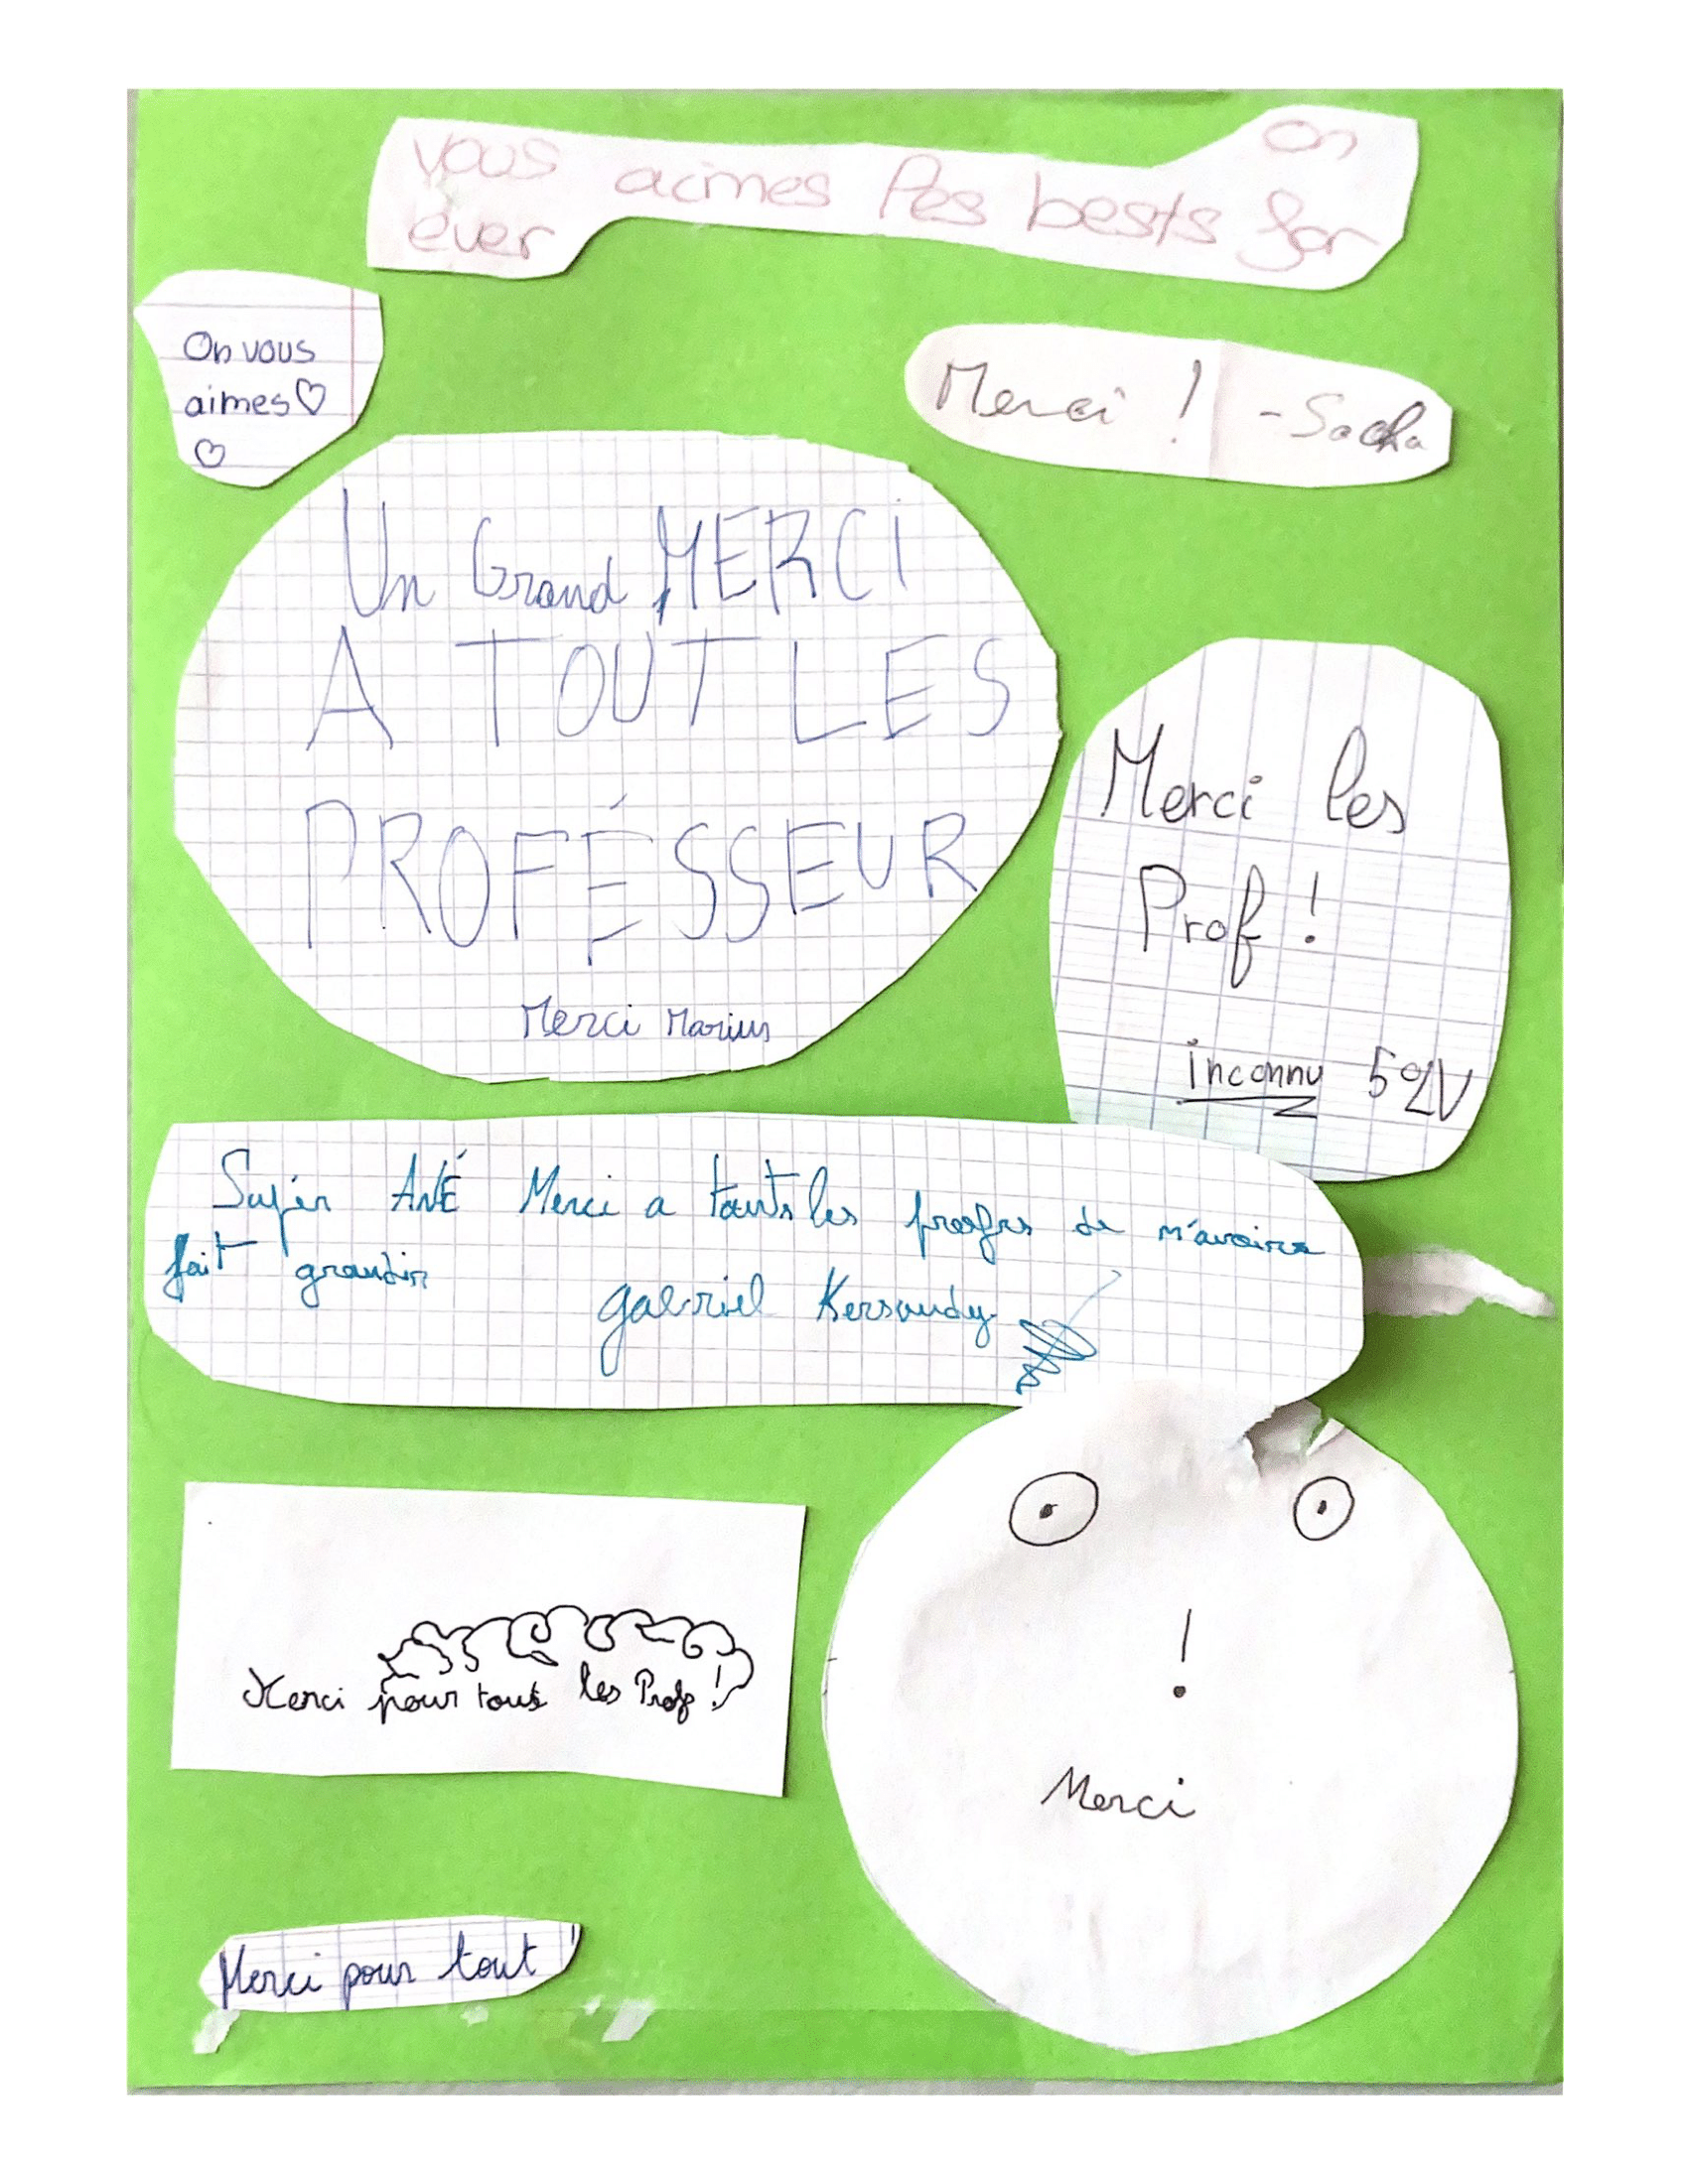 on
vous aimes les bests for
ever
On vous
aimes♡
♡
Merci ! - Sacha
Un Grand MERCI
A TOUT LES
PROFÉSSEUR
Merci Marius
Merci les
Prof !
inconnu 5
Supér ANÉ Merci a touts les profrs de m'avoire
fait grandir
gabriel Kersaudy
Merci pour tous les Profs !
!
Merci
Merci pour tout !